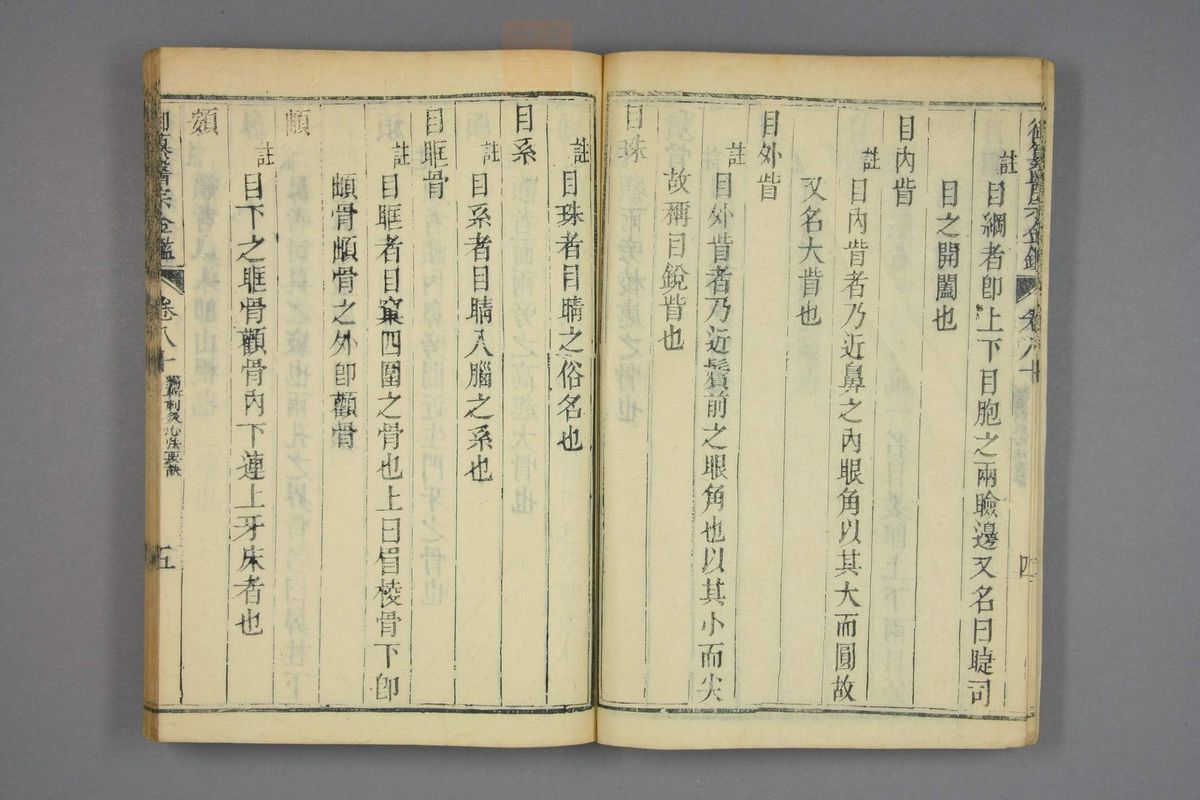 御纂醫宗金鑑
卷八十
四
註
目綱者卽上下目胞之兩瞼邊又名曰睫司
目之開闔也
目內眥
註
目內眥者乃近鼻之內眼角以其大而圓故
又名大眥也
目外眥
註
目外眥者乃近鬢前之眼角也以其小而尖
故稱目銳眥也
目珠
註
目珠者目睛之俗名也
目系
註
目系者目睛入腦之系也
目眶骨
註
目眶者目窠四圍之骨也上曰眉棱骨下卽
䪼骨䪼骨之外卽顴骨
䪼
註
目下之眶骨顴骨內下連上牙床者也
頞
御纂醫宗金鑑
卷八十
編輯刺灸心法要訣
五